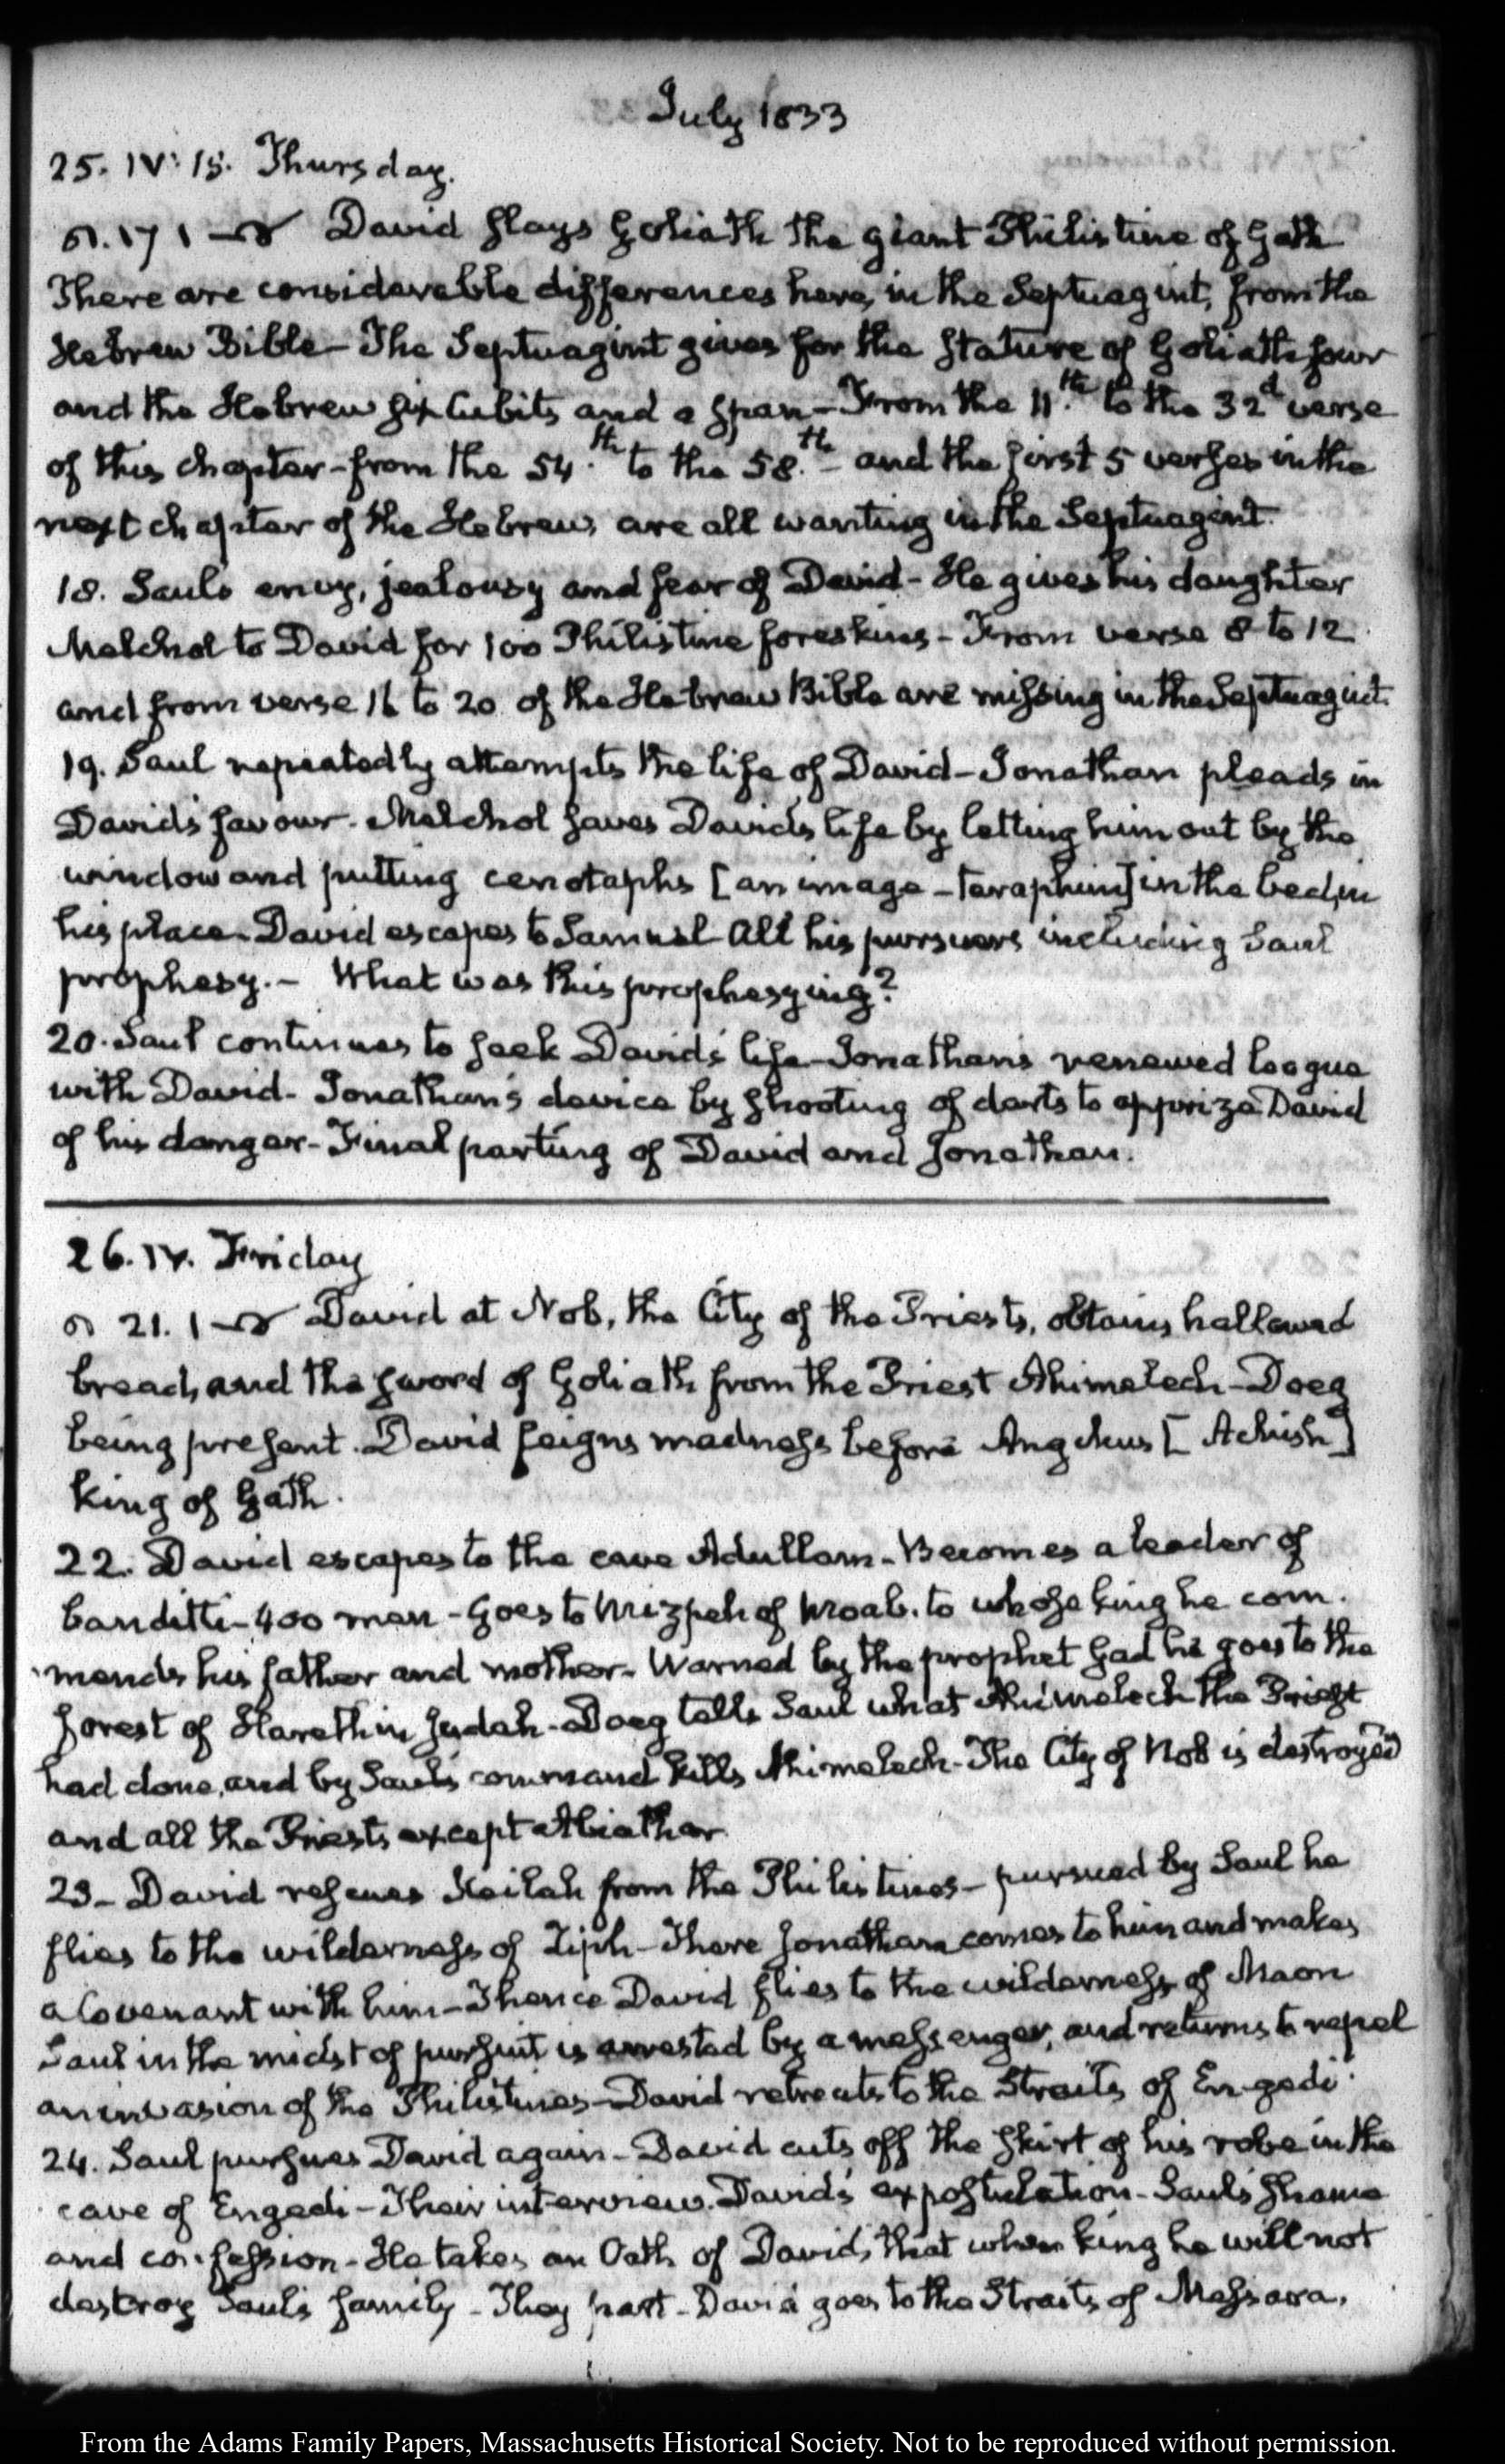 July 1833
25. IV: 15. Thursday.
17 1 David slays Goliath the giant Philistine of Gath
There are considerable differences here, in the Septuagint, from the
Hebrew Bible— The Septuagint gives for the stature of Goliath four
and the Hebrew six Cubits and a span— From the 11.th to the 32d verse
of this chapter—from the 54.th to the 58.th— and the first 5 verses in the
next chapter of the Hebrew, are all wanting in the Septuagint.
18. Sauls envy, jealousy and fear of David— He gives his daughter
Melchol to David for 100 Philistine foreskins— From verse 8 to 12
and from verse 16 to 20 of the Hebrew Bible are missing in the Septuagint.
19. Saul repeatedly attempts the life of David— Jonathan pleads in
David's favour. Melchol saves David's life by letting him out by the
window and putting cenotaphs [an image—teraphim] in the bed, in
his place. David escapes to Samuel— All his pursuers including Saul
prophesy.— What was this prophesying?
20. Saul continues to seek David's life—Jonathan's renewed league
with David— Jonathan's device by shooting of darts to apprize David
of his danger— Final parting of David and Jonathan.
26. IV. Friday
21. 1 David at Nob, the City of the Priests, obtains hallowed
bread, and the sword of Goliath from the Priest Ahimelech—Doeg
being present. David feigns madness before Angchus [Achish]
king of Gath.
22. David escapes to the cave Adullam— Becomes a leader of
banditti—400 men—Goes to Mizpeh of Moab. to whose king he com-
mends his father and mother— Warned by the prophet Gad he goes to the
forest of Hareth in Judah—Doeg tells Saul what Ahimelech the Priest
had done, and by Saul's command kills Ahimelech—The City of Nob is destroyed
and all the Priests except Abiathar
23— David rescues Keilah from the Philistines— pursued by Saul he
flies to the wilderness of Ziph— There Jonathan comes to him and makes
a Covenant with him— Thence David flies to the wilderness of Maon
Saul in the midst of pursuit is arrested by a messenger, and returns to repel
an invasion of the Philistines—David retreats to the Straits of En-gedi.
24. Saul pursues David again— David cuts off the skirt of his robe in the
cave of Engedi— Their interview. David's expostulation— Saul's shame
and confession— He takes an Oath of David, that when king he will not
destroy Saul's family— They part— David goes to the Straits of Messara.
From the Adams Family Papers, Massachusetts Historical Society. Not to be reproduced without permission.